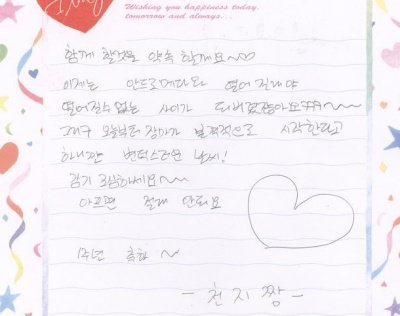 Wishing you happiness today,
tomorrow and always...
함께 할것을 약속 할께요~♡
이제는 안드로메다와 떨어 질래야
떨어질수 없는 사이가 되버렸잖아요ㅋㅋ~~
대구 오늘부터 장마가 본격적으로 시작한다고
하네 변덕스러운 날씨!
감기 조심하세요~~
아프면 절대 안되요
1주년 축하~
- 천지짱 -